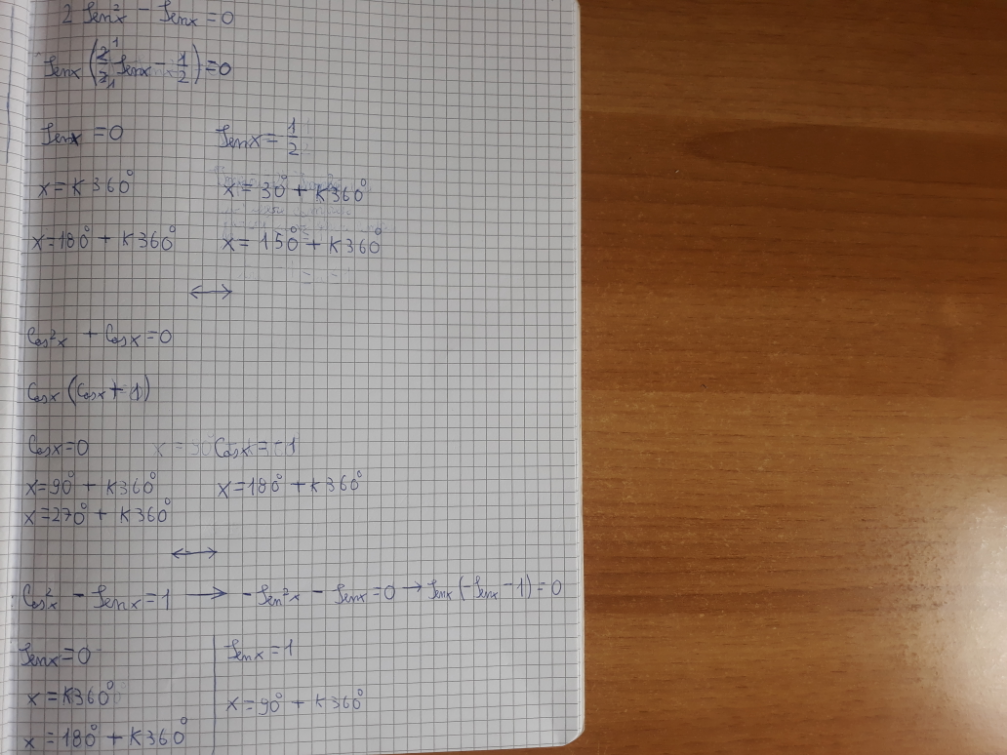 2 Sen²x - Senx = 0
Senx (2/2 Senx - 1/2) = 0
Senx = 0 Senx = 1/2
x = K360° x = 30° + K360°
x = 180° + K360° x = 150° + K360°
↔
Cos²x + Cosx = 0
Cosx (Cosx + 1)
Cosx = 0 Cosx = -1
x = 90° + K360° x = 180° + K360°
x = 270° + K360°
↔
Cos²x - Senx = 1 → -Sen²x - Senx = 0 → Senx (-Senx - 1) = 0
Senx = 0 Senx = 1
x = K360° x = 90° + K360°
x = 180° + K360°